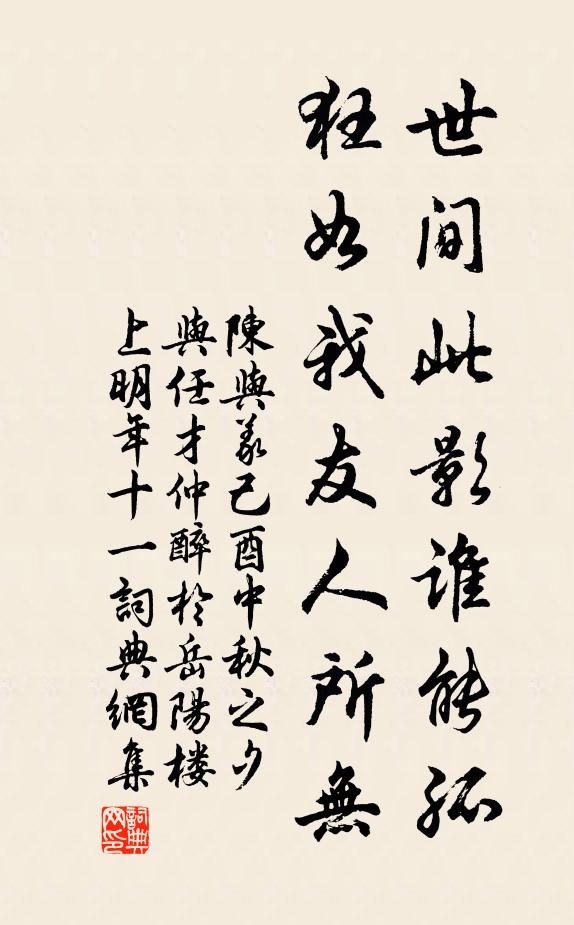 世間此影誰能孤
狂如我友人所無
陳與義己酉中秋之夕
與任才仲醉於岳陽楼
上明年十一詞典網集
詞典
网印